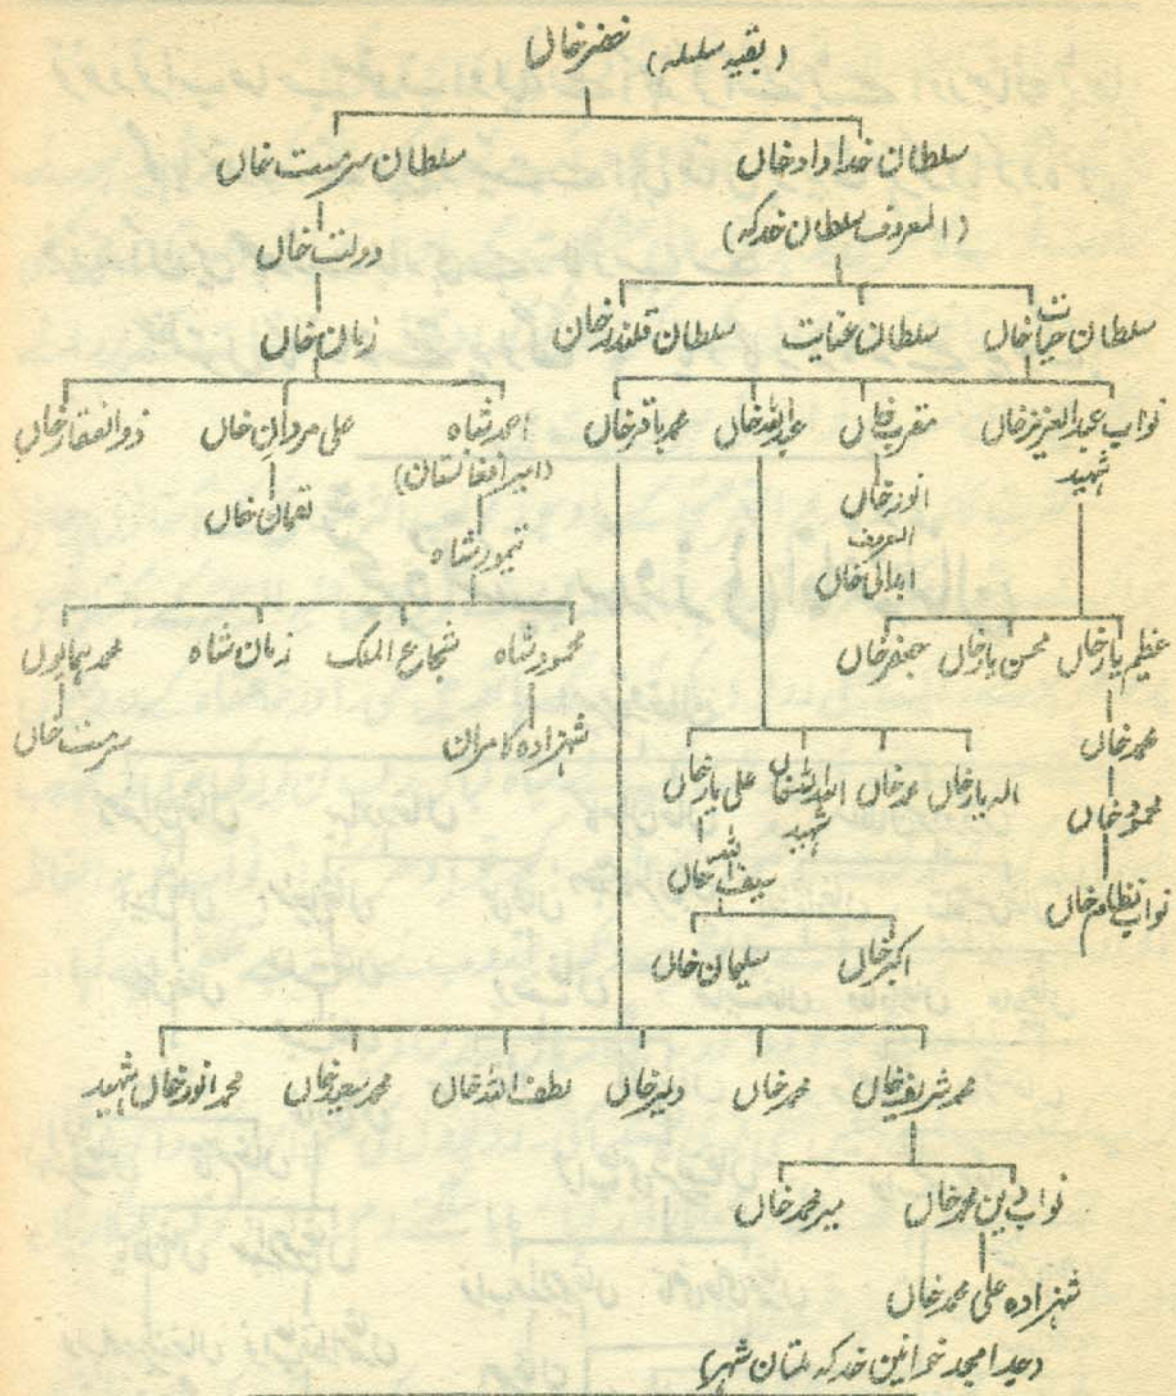 (بقیہ سلسلہ) خضر خاں
سلطان خداداد خاں
سلطان سرمست خاں
(المعروف سلطان خدکہ)
دولت خاں
سلطان حیات خاں
سلطان عنایت
سلطان قلندر خان
زمان خاں
نواب عبدالعزیز خاں
شہید
مقرب خاں
عبداللہ خاں
محمد باقر خاں
احمد شاہ
(امیر افغانستان)
علی مردان خاں
ذوالفقار خاں
انور خاں
المعروف
ابدالی خاں
لقمان خاں
تیمور شاہ
عظیم یار خاں
محسن یار خاں
جعفر خاں
محمود شاہ
شجاع الملک
زمان شاہ
محمد ہمایوں
محمد خاں
شہزادہ کامران
سرمست خاں
الہ یار خاں
محمد خاں
شہید
علی یار خاں
محمود خاں
سیف اللہ خاں
نواب نظام خاں
اکبر خاں
سلیمان خاں
محمد شریف خاں
محمد خاں
دلیر خاں
لطف اللہ خاں
محمد سعید خاں
محمد انور خاں شہید
نواب دین محمد خاں
میر محمد خاں
شہزادہ علی محمد خاں
(جد امجد خوانین خدکہ ملتان شہر)